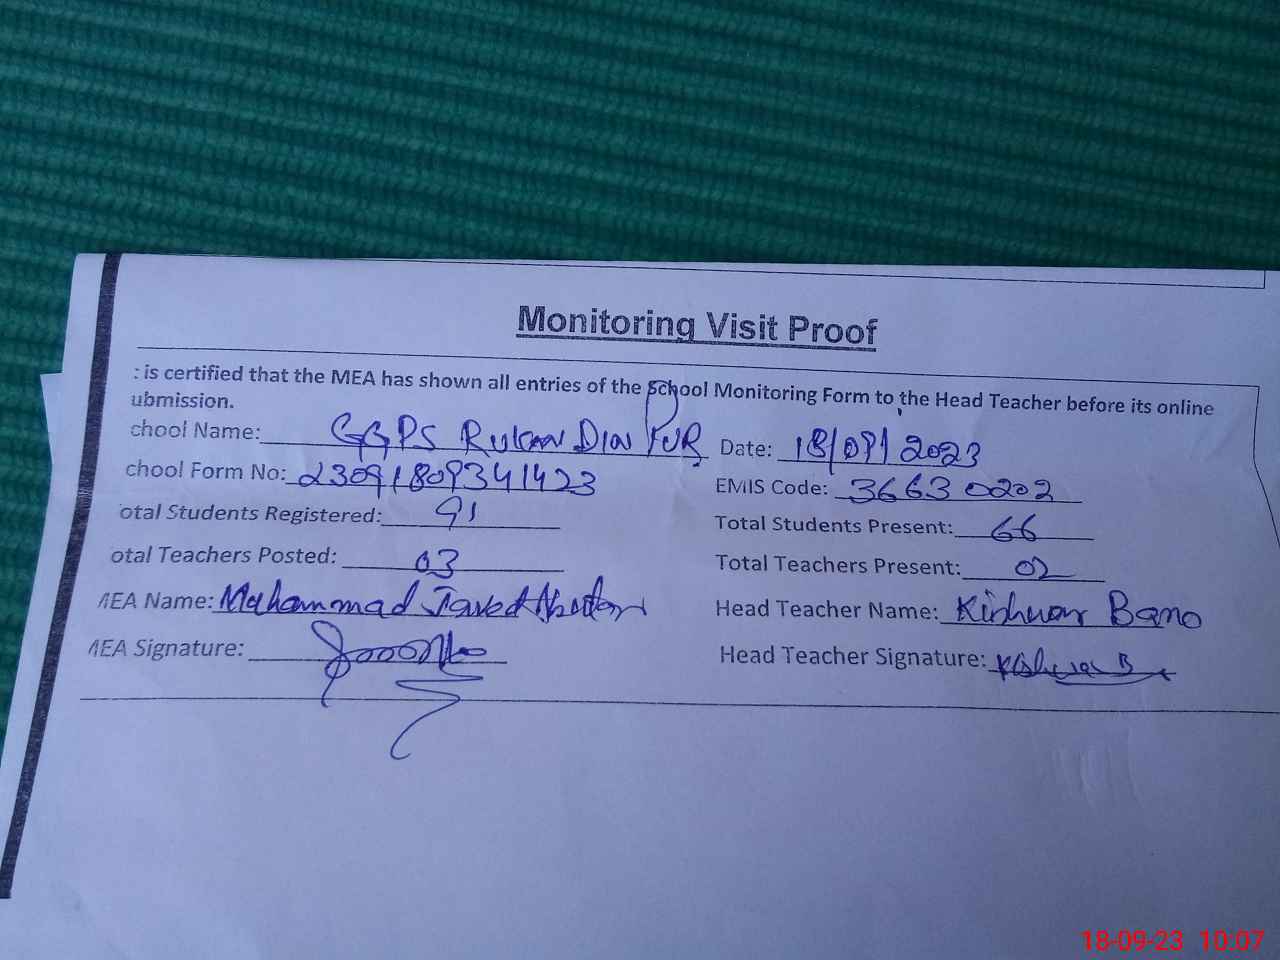 Monitoring Visit Proof
: is certified that the MEA has shown all entries of the School Monitoring Form to the Head Teacher before its online
ubmission.
chool Name: GGPS Rukan Din PUR Date: 18/09/2023
chool Form No: 23091809341423 EMIS Code: 36630202
otal Students Registered: 91 Total Students Present: 66
otal Teachers Posted: 03 Total Teachers Present: 02
MEA Name: Muhammad Javed Head Teacher Name: Kishwar Bano
MEA Signature: Head Teacher Signature: Kishwar B
18-09-23 10:07